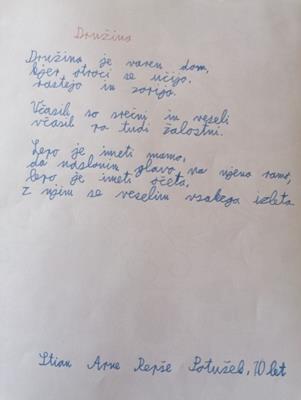 Družina
Družina je varen dom,
kjer otroci se učijo,
rastejo in zorijo.
Včasih so srečni in veseli
včasih pa tudi žalostni.
Lepo je imeti mamo,
da naslonim glavo na njeno ramo,
lepo je imeti očeta,
z njim se veselim vsakega izleta
Stian Arne Repše Potušek, 10 let